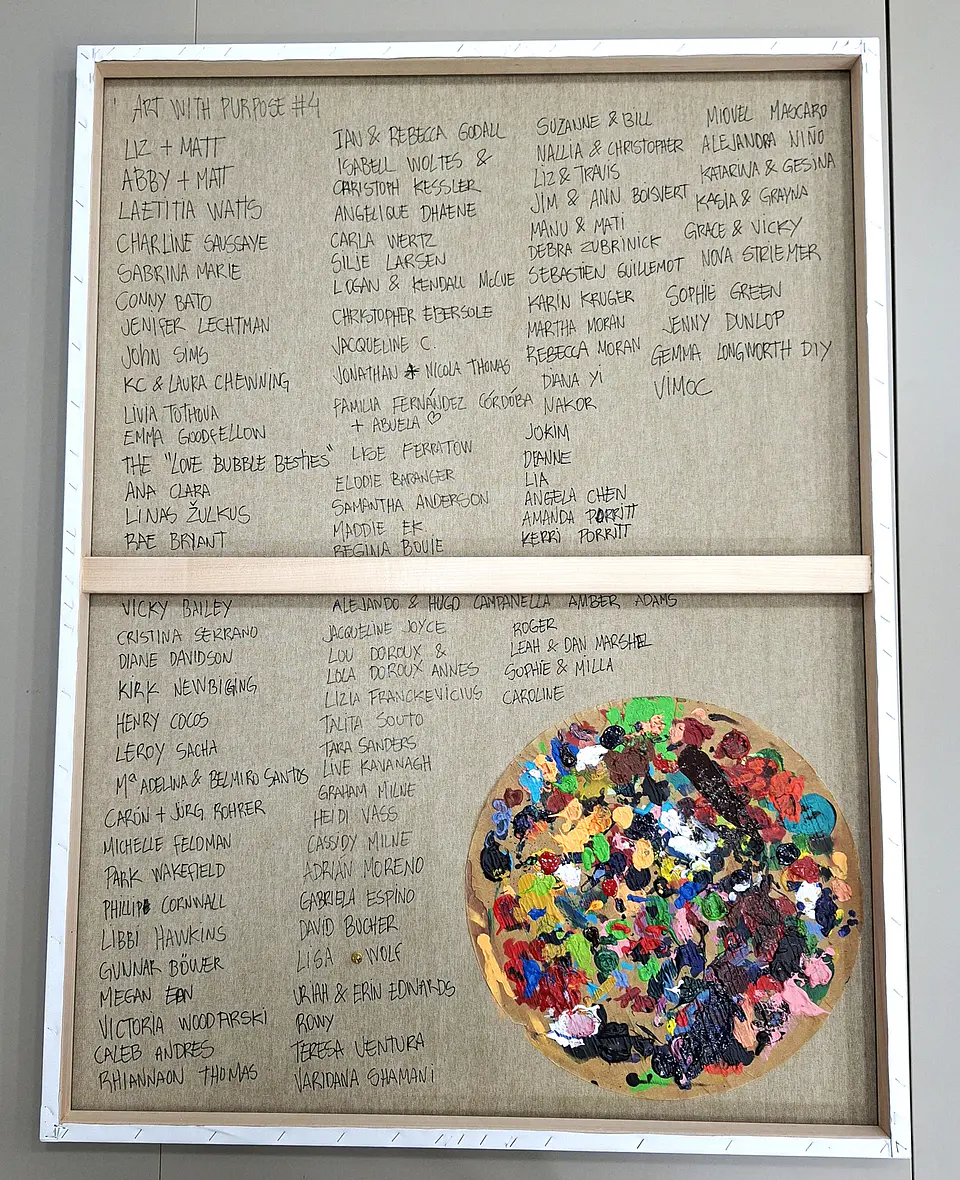 ART WITH PURPOSE #4
LIZ + MATT
ABBY + MATT
LAETITIA WATTS
CHARLINE SAUSSAYE
SABRINA MARIE
CONNY BATO
JENIFER LECHTMAN
JOHN SIMS
KC & LAURA CHEWNING
LIVIA TOTHOVA
EMMA GOODFELLOW
THE "LOVE BUBBLE BESTIES"
ANA CLARA
LINAS ŽULKUS
RAE BRYANT
VICKY BAILEY
CRISTINA SERRANO
DIANE DAVIDSON
KIRK NEWBIGING
HENRY COCOS
LEROY SACHA
Mª ADELINA & BELMIRO SANTOS
CARÓN + JÜRG ROHRER
MICHELLE FELDMAN
PARK WAKEFIELD
PHILLIP CORNWALL
LIBBI HAWKINS
GUNNAR BÖWER
MEGAN
VICTORIA WOODARSKI
CALEB ANDRES
RHIANNAON THOMAS
IAN & REBECCA GODALL
ISABELL WOLTES &
CHRISTOPH KESSLER
ANGÉLIQUE DHAENE
CARLA WERTZ
SILJE LARSEN
LOGAN & KENDALL McCUE
CHRISTOPHER EBERSOLE
JACQUELINE C.
JONATHAN & NICOLA THOMAS
FAMILIA FERNÁNDEZ CÓRDOBA
+ ABUELA ♡
LISE FERRATOW
ELODIE BARANGER
SAMANTHA ANDERSON
MADDIE EK.
REGINA BOUIE
ALEJANDO & HUGO CAMPANELLA
JACQUELINE JOYCE
LOU DOROUX &
LOLA DOROUX ANNES
LIZIA FRANCKEVICIUS
TALITA SOUTO
TARA SANDERS
LIVE KAVANAGH
GRAHAM MILNE
HEIDI VASS
CASSIDY MILNE
ADRIÁN MORENO
GABRIELA ESPINO
DAVID BUCHER
LISA WOLF
URIAH & ERIN EDWARDS
ROWY
TERESA VENTURA
VARIDANA SHAMANI
SUZANNE & BILL
NALLIA & CHRISTOPHER
LIZ & TRAVIS
JIM & ANN BOISVERT
MANU & MATI
DEBRA ZUBRINICK
SEBASTIEN GUILLEMOT
KARIN KRUGER
MARTHA MORAN
REBECCA MORAN
DIANA YI
NAKOR
JOKIM
DIANNE
LIA
ANGELA CHEN
AMANDA PORRITT
KERRI PORRITT
AMBER ADAMS
ROGER
LEAH & DAN MARSHEL
SOPHIE & MILLA
CAROLINE
MIQUEL MASCARO
ALEJANDRA NIÑO
KATARINA & GESINA
KASIA & GRAYNA
GRACE & VICKY
NOVA STRIEMER
SOPHIE GREEN
JENNY DUNLOP
GEMMA LONGWORTH DIY
VIMOC